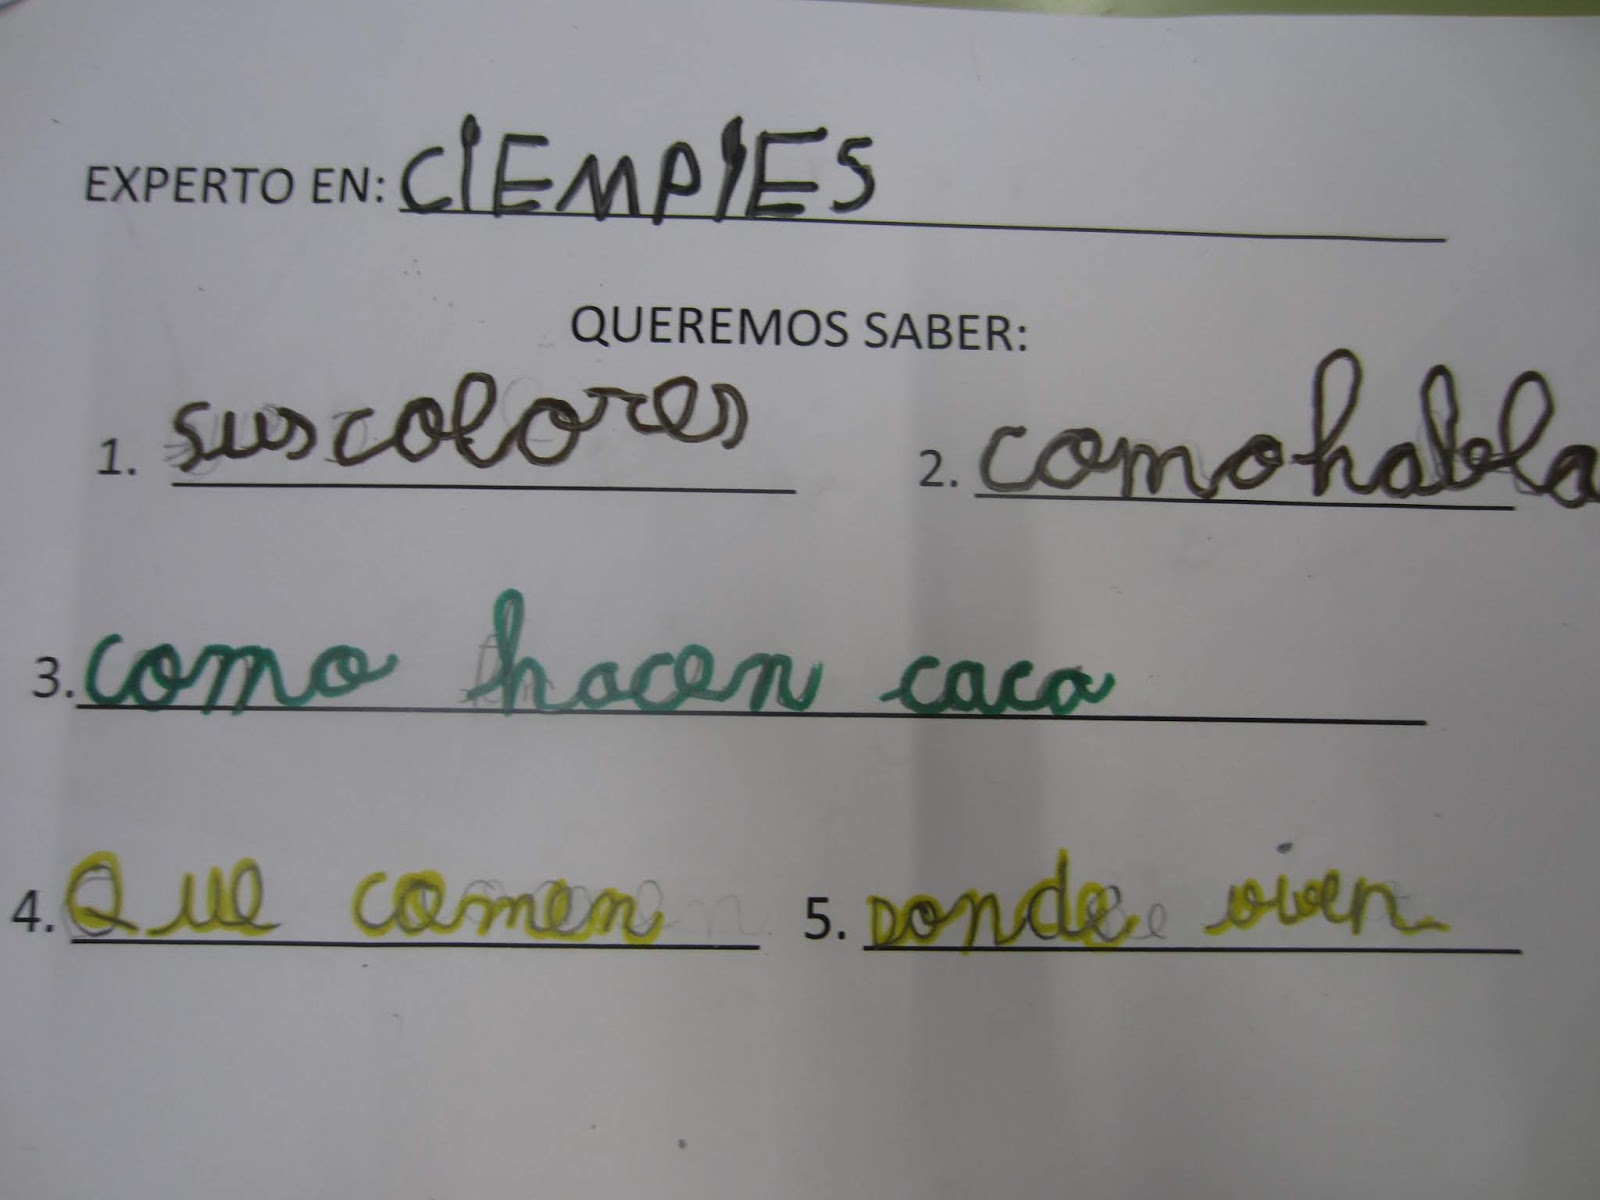 EXPERTO EN: CIEMPIES
QUEREMOS SABER:
1. suscolores 2. comohabla
3. como hacen caca
4. Que comen 5. Donde viven